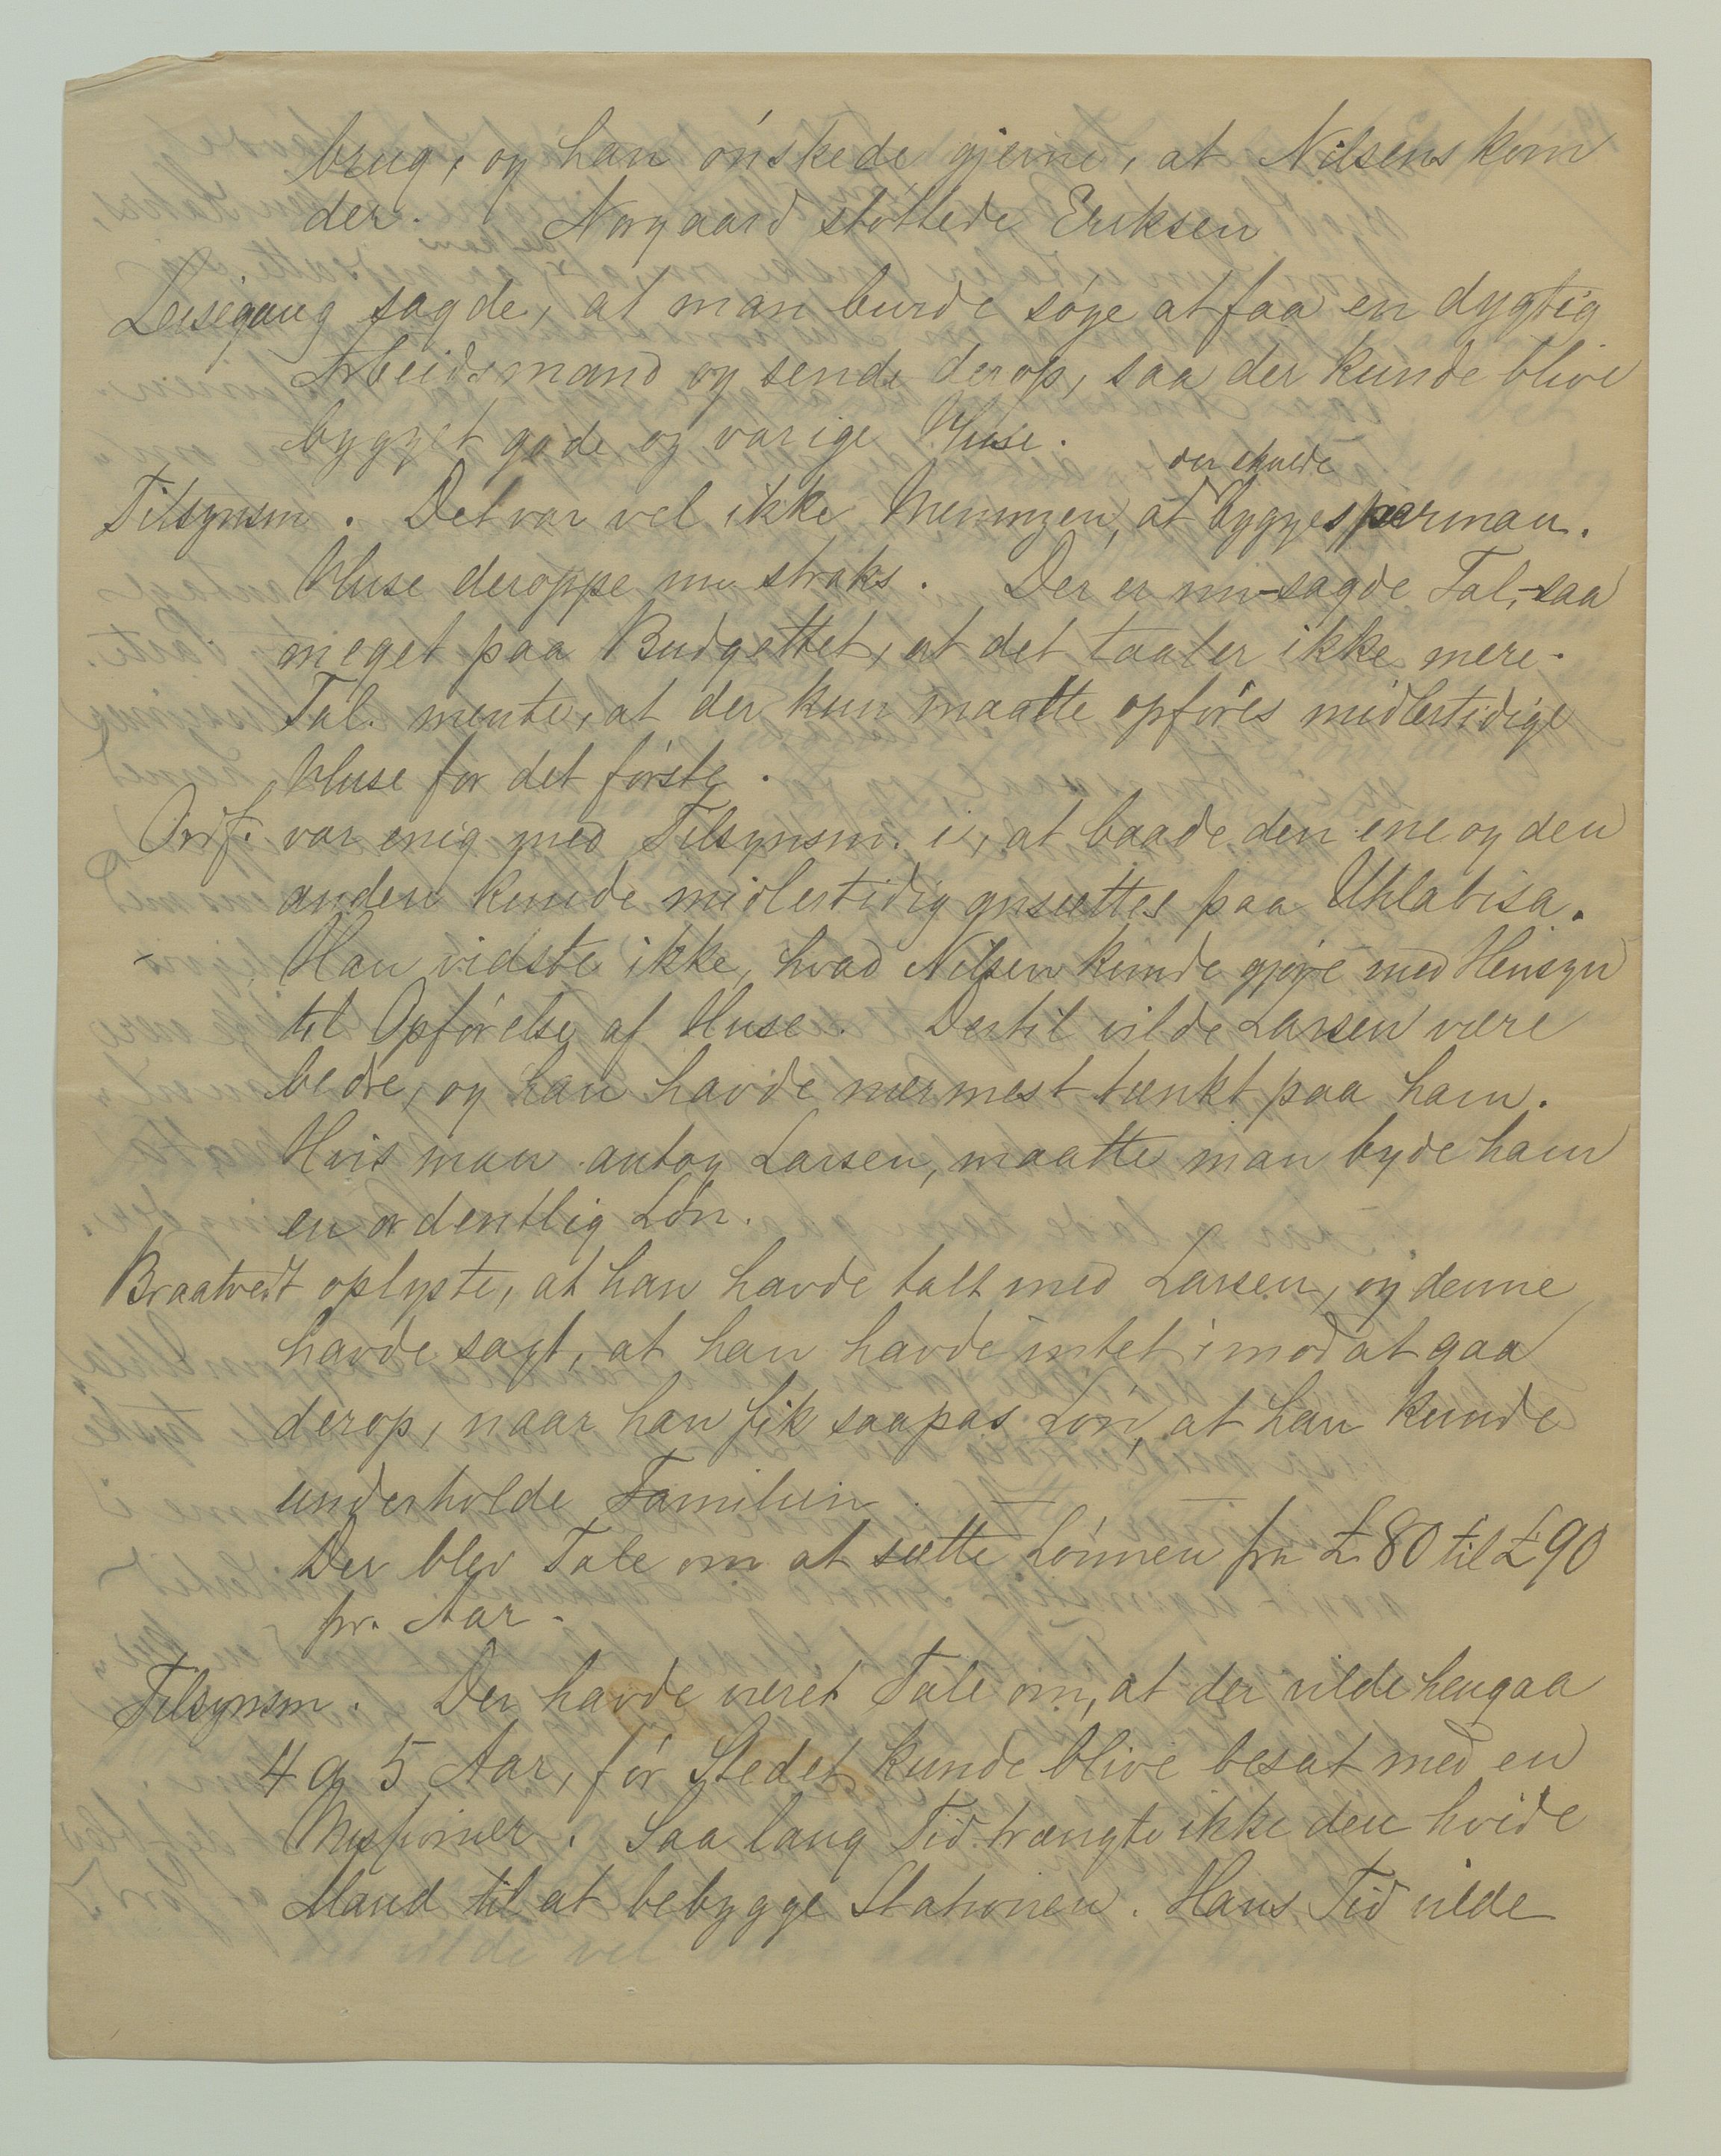 brug, og han ønskede gjerne, at Nilsens kom
der. Norgaard støttede Eriksen
Leisegang sagde, at man burde søge at faa en dygtig
Arbeidsmand og sende derop, saa der kunde blive
bygget gode og varige Huse.
der skulde
Tilsynsm. Det var vel ikke Meningen, at bygges perman.
Huse deroppe nu straks. Der er nu - sagde Tal. - saa
meget paa Budgettet, at det taaler ikke mere.
Tal. mente, at der kun maatte opføres midlertidige
Huse for det første.
Ordf. var enig med Tilsynsm. i, at baade den ene og den
anden kunde midlertidig ansættes paa Uhlabisa.
- Han vidste ikke, hvad Nilsen kunde gjøre med Hensyn
til Opførelse af Huse. Dertil vilde Larsen være
bedre, og han havde nærmest tænkt paa ham.
Hvis man antog Larsen, maatte man byde ham
en ordentlig Løn.
Braatvedt oplyste, at han havde talt med Larsen, og denne
havde sagt, at han havde intet imod at gaa
derop, naar han fik saapas Løn, at han kunde
underholde Familien.
Der blev Tale om at sætte Lønnen fra £80 til £90
pr. Aar.
Tilsynsm. Der havde været Tale om, at der vilde hengaa
4 a 5 Aar, før Stedet kunde blive besat med en
Missionær. Saa lang Tid trængte ikke den hvide
Mand til at bebygge Stationen. Hans Tid vilde